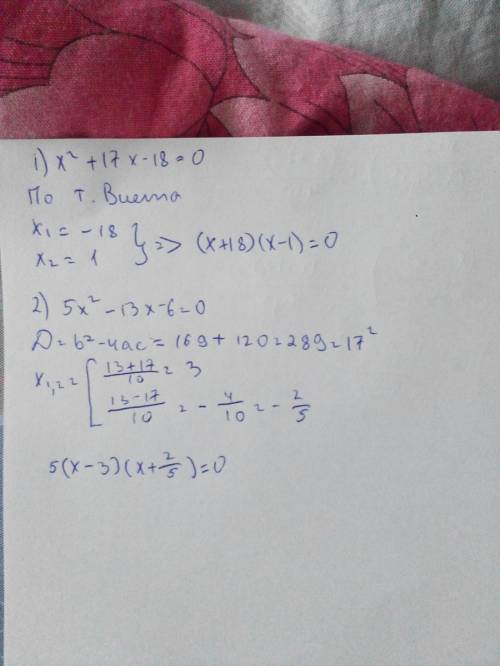 1) x² + 17x - 18 = 0
По т. Виета
x₁ = -18
x₂ = 1 } => (x+18)(x-1) = 0
2) 5x² - 13x - 6 = 0
D = b² - 4ac = 169 + 120 = 289 = 17²
x₁,₂ = [ (13+17)/10 = 3
(13-17)/10 = - 4/10 = - 2/5
5(x-3)(x+2/5) = 0